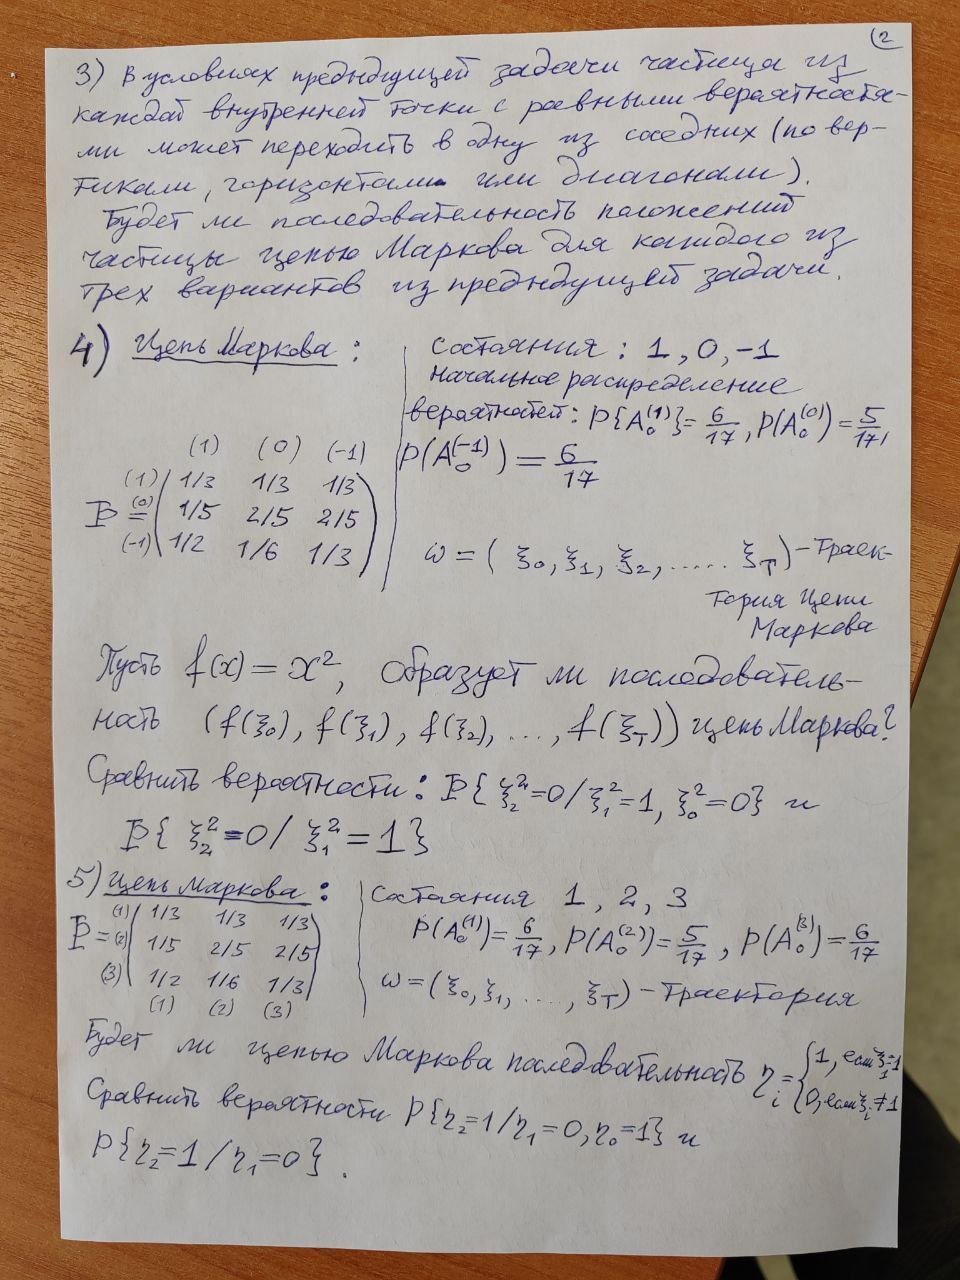 (2
3) В условиях предыдущей задачи частица из
каждой внутренней точки с равными вероятностя-
ми может переходить в одну из соседних (по вер-
тикали, горизонтали или диагонали).
Будет ли последовательность положений
частицы цепью Маркова для каждого из
трех вариантов из предыдущей задачи.
4) Цепь Маркова :
состояния : 1, 0, -1
начальное распределение
вероятностей: P{A₀⁽¹⁾} = 6/17, P(A₀⁽⁰⁾) = 5/17,
P(A₀⁽⁻¹⁾) = 6/17
(1) (0) (-1)
(1) 1/3 1/3 1/3
P = (0) 1/5 2/5 2/5
(-1) 1/2 1/6 1/3
ω = ( ξ₀, ξ₁, ξ₂, ..... ξ_T) - траек-
тория цепи
Маркова
Пусть f(x) = x², образует ли последователь-
ность (f(ξ₀), f(ξ₁), f(ξ₂), ..., f(ξ_T)) цепь Маркова?
Сравнить вероятности : P{ ξ₂²=0 / ξ₁²=1, ξ₀²=0} и
P{ ξ₂²=0 / ξ₁² = 1}
5) Цепь Маркова :
состояния 1, 2, 3
P(A₀⁽¹⁾) = 6/17, P(A₀⁽²⁾) = 5/17, P(A₀⁽³⁾) = 6/17
ω = (ξ₀, ξ₁, ...., ξ_T) - траектория
(1) 1/3 1/3 1/3
P = (2) 1/5 2/5 2/5
(3) 1/2 1/6 1/3
(1) (2) (3)
Будет ли цепью Маркова последовательность η_i = {1, если ξ_i=1
0, если ξ_i ≠ 1
Сравнить вероятности P{η₂=1 / η₁=0, η₀=1} и
P{η₂=1 / η₁=0}.